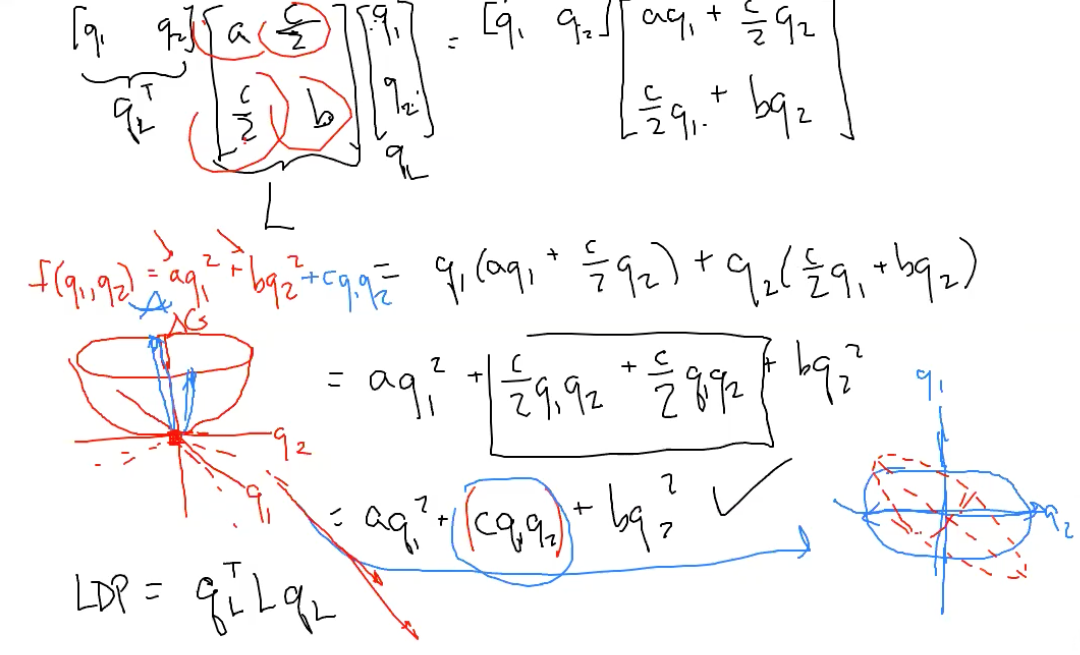 [q₁ q₂] [a c/2; c/2 b] [q₁; q₂] = [q₁ q₂] [aq₁ + c/2 q₂; c/2 q₁ + bq₂]
q_L^T
q_L
L
f(q₁,q₂) = aq₁² + bq₂² + cq₁q₂ = q₁(aq₁ + c/2 q₂) + q₂(c/2 q₁ + bq₂)
ΔG
= aq₁² + c/2 q₁q₂ + c/2 q₁q₂ + bq₂²
q₁
q₂
q₁
= aq₁² + (cq₁q₂) + bq₂² ✓
q₂
LDP = q_L^T L q_L